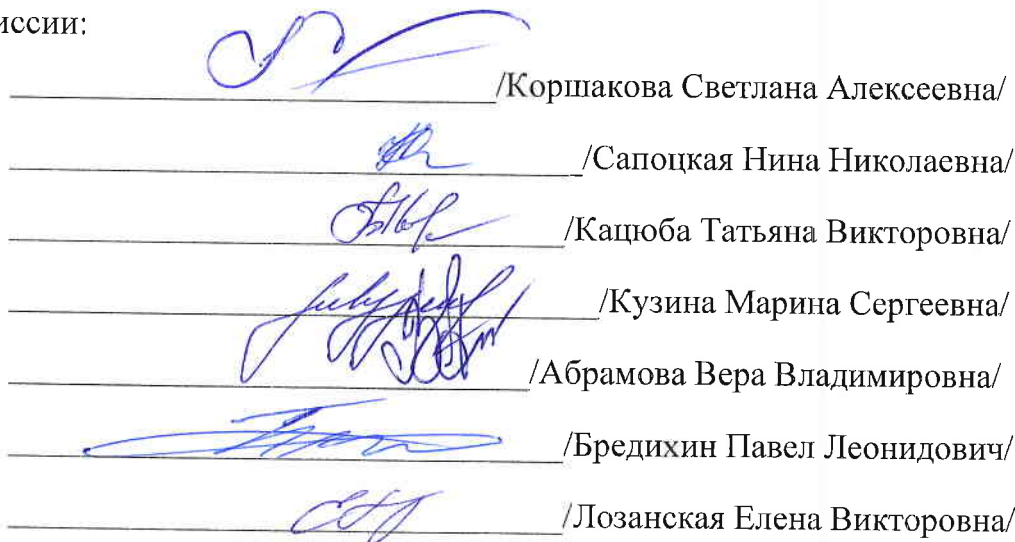 иссии:
/Коршакова Светлана Алексеевна/
/Сапоцкая Нина Николаевна/
/Кацюба Татьяна Викторовна/
/Кузина Марина Сергеевна/
/Абрамова Вера Владимировна/
/Бредихин Павел Леонидович/
/Лозанская Елена Викторовна/